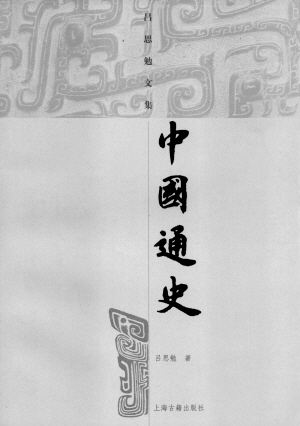 吕思勉文集
中國通史
吕思勉 著
上海古籍出版社